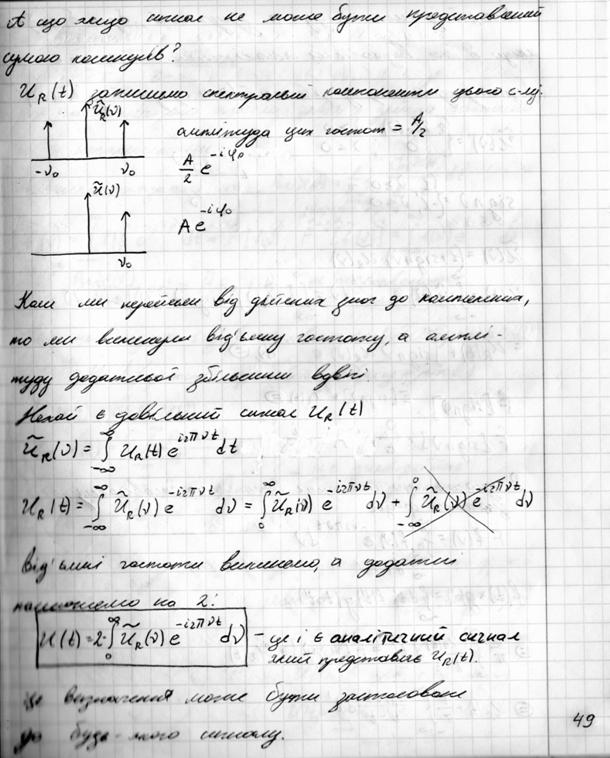 А що якщо сигнал не може бути представлений
сумою косинусів?
U_R(t) запишемо спектральні компоненти цього с-лу.
Ũ_R(ν)
амплітуда цих частот = A/2
-ν₀ ν₀
A/2 e^{-iφ₀}
Ũ(ν)
A e^{-iφ₀}
ν₀
Коли ми перейшли від дійсних знач до комплексних,
то ми викинули від'ємну частоту, а амплі-
туду додатньої збільшили вдвічі.
Нехай є довільний сигнал U_R(t)
Ũ_R(ν) = ∫_{-∞}^{∞} U_R(t) e^{i2πνt} dt
U_R(t) = ∫_{-∞}^{∞} Ũ_R(ν) e^{-i2πνt} dν = ∫_0^∞ Ũ_R(ν) e^{-i2πνt} dν + ∫_{-∞}^0 Ũ_R(ν) e^{-i2πνt} dν
Від'ємні частоти викинемо, а додатні
помножимо на 2:
U(t) = 2·∫_0^∞ Ũ_R(ν) e^{-i2πνt} dν – це і є аналітичний сигнал
який представляє U_R(t).
Це визначення може бути застосоване
до будь-якого сигналу.
49